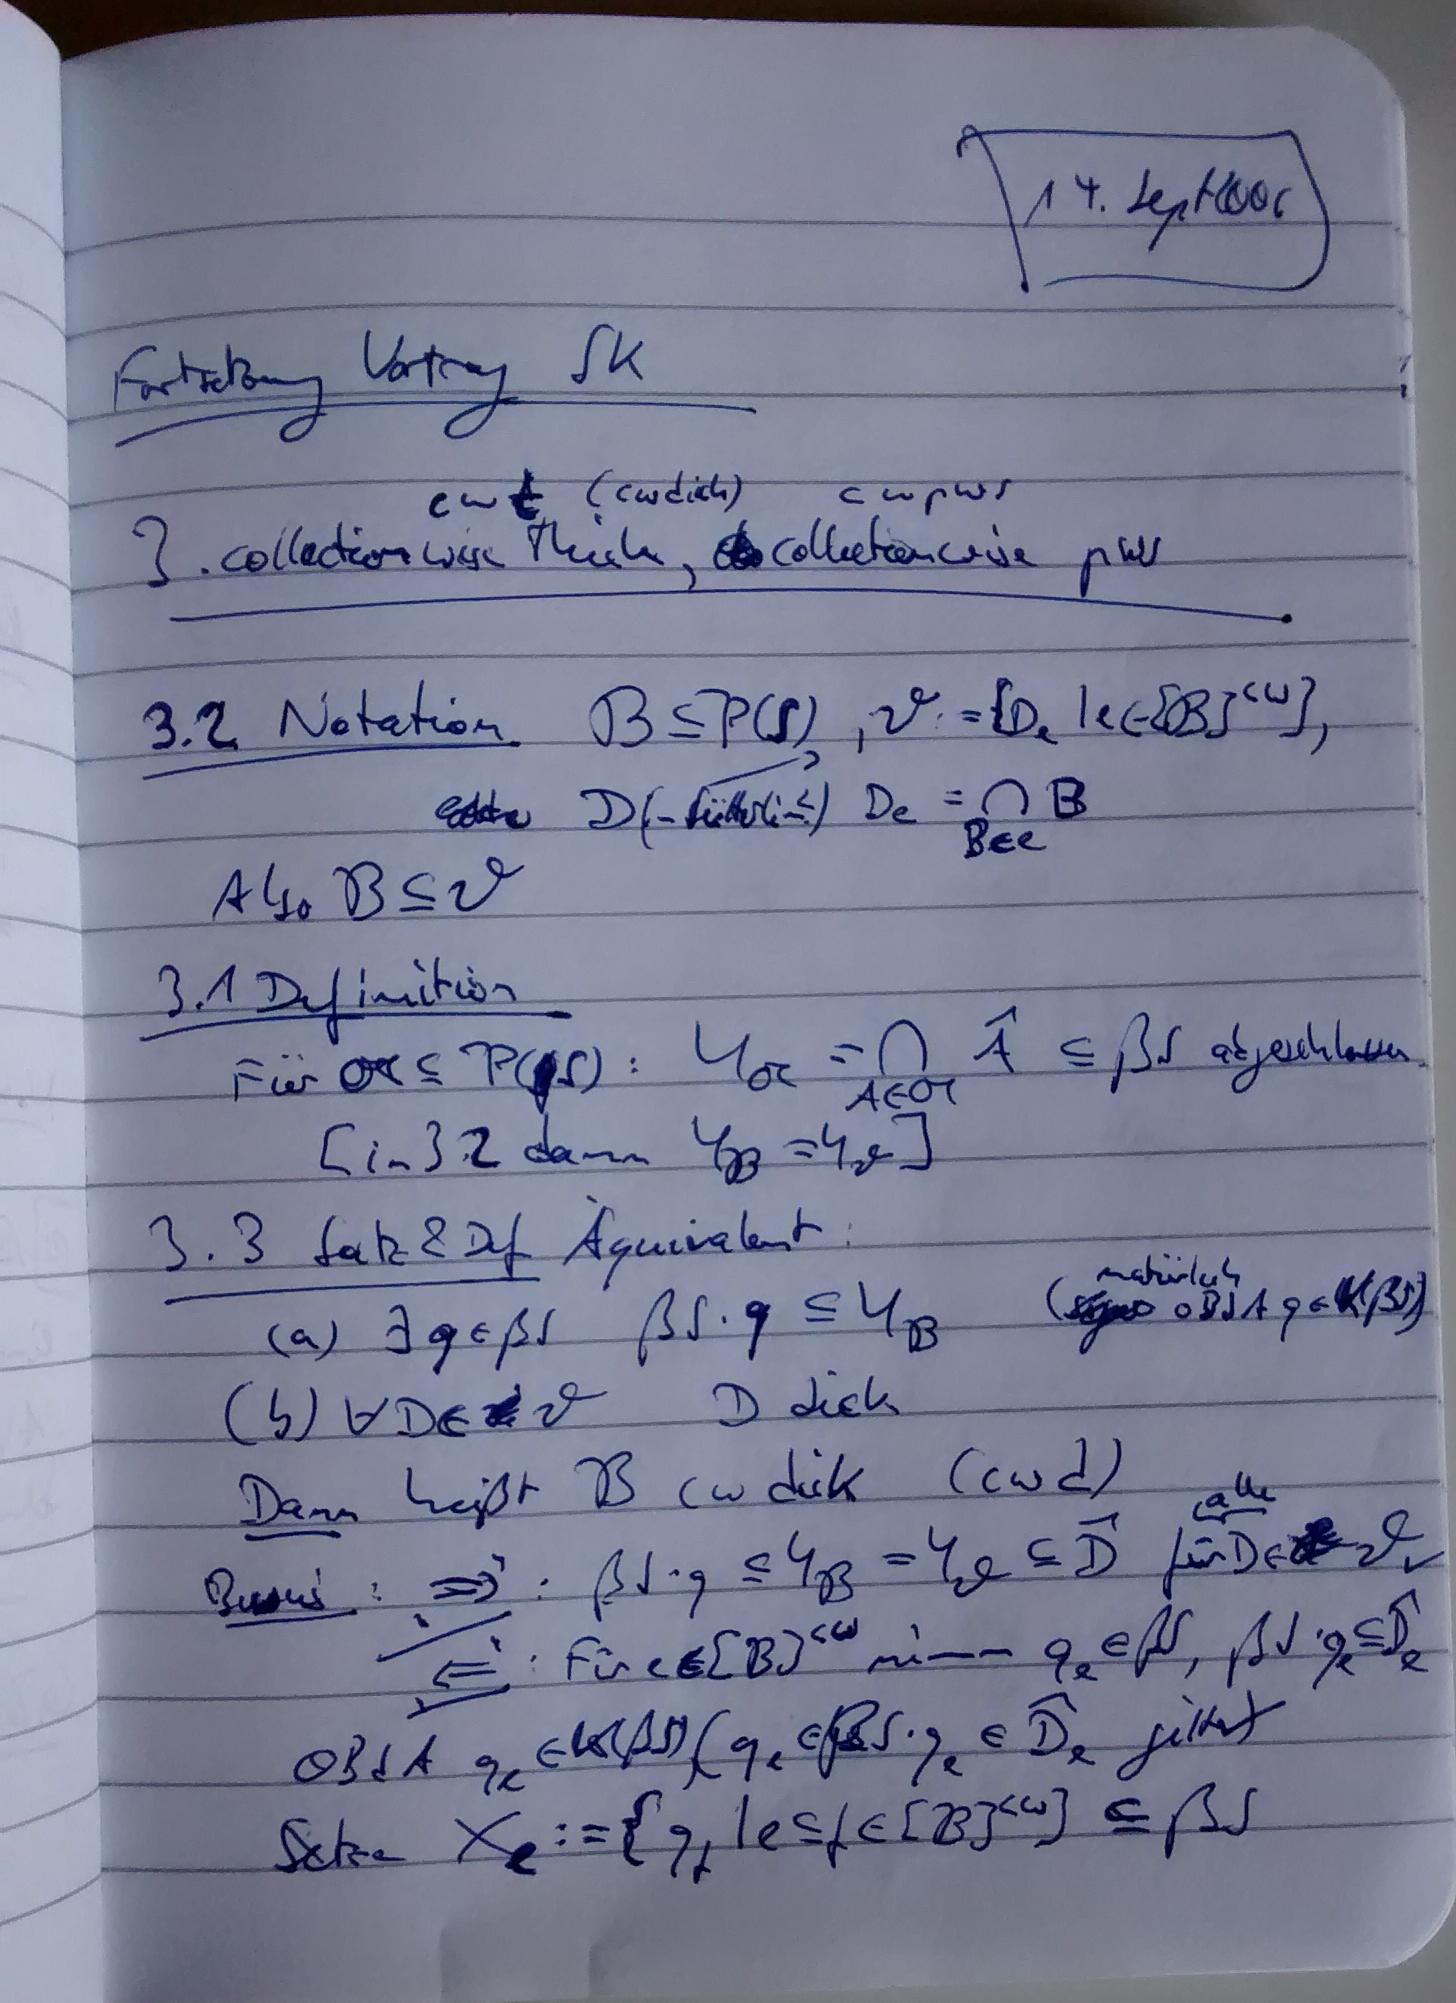 14. Sept 2006
Fortsetzung Vortrag SK
cwt (cwdick) cwpws
3. collectionwise thick, collectionwise pws
3.2 Notation B ⊆ P(S), 𝒟 := {D_e | e ∈ [B]^{<ω}},
D(-Sütterlin-) D_e = ⋂_{B∈e} B
Also B ⊆ 𝒟
3.1 Definition
Für 𝔄 ⊆ P(S): Y_𝔄 = ⋂_{A∈𝔄} Â ⊆ βS abgeschlossen
[in 3.2 dann Y_B = Y_𝒟]
3.3 Satz & Def Äquivalent:
(a) ∃ q ∈ βS βS·q ⊆ Y_B (natürlich oBdA q ∈ K(βS))
(b) ∀ D ∈ 𝒟 D dick
Dann heißt B cw dick (cwd)
Beweis: "⇒": βS·q ⊆ Y_B = Y_𝒟 ⊆ D̂ für alle D ∈ 𝒟 ✓
"⇐": Für e ∈ [B]^{<ω} nimm q_e ∈ βS, βS·q_e ⊆ D̂_e
OBdA q_e ∈ K(βS) (q_e ∈ βS·q_e ∈ D̂_e
Setze X_e := {q_f | e ⊆ f ∈ [B]^{<ω}} ⊆ βS